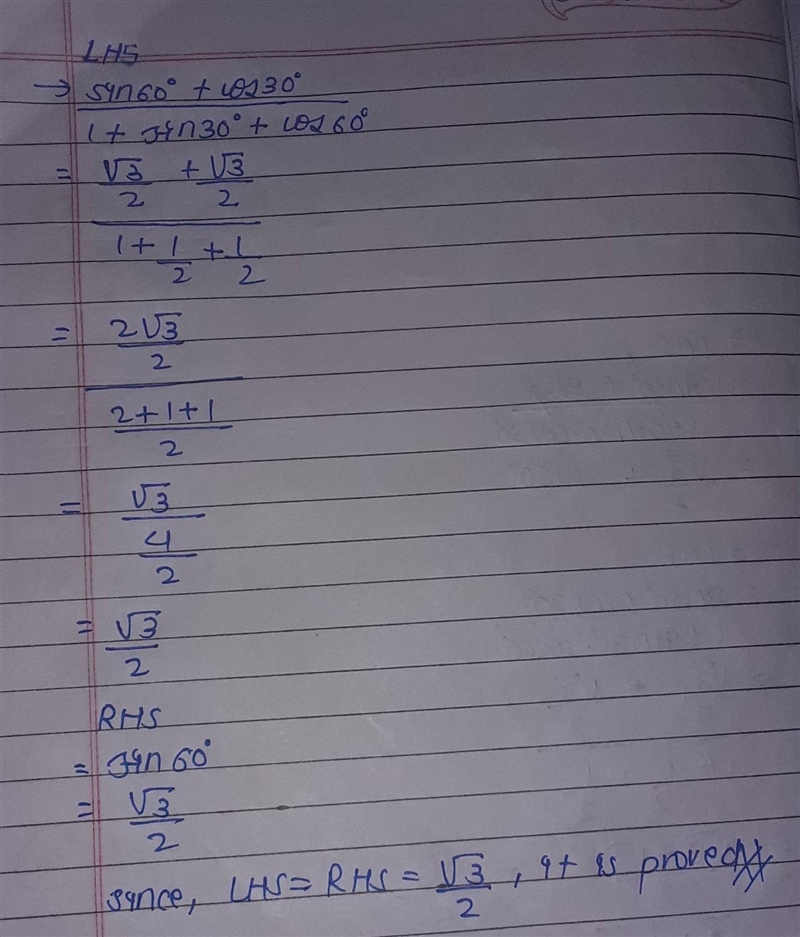 LHS
→ sin60° + cos30°
1 + sin30° + cos60°
= √3/2 + √3/2
1 + 1/2 + 1/2
= 2√3/2
2+1+1/2
= √3
4/2
= √3/2
RHS
= sin60°
= √3/2
since, LHS = RHS = √3/2, it is proved